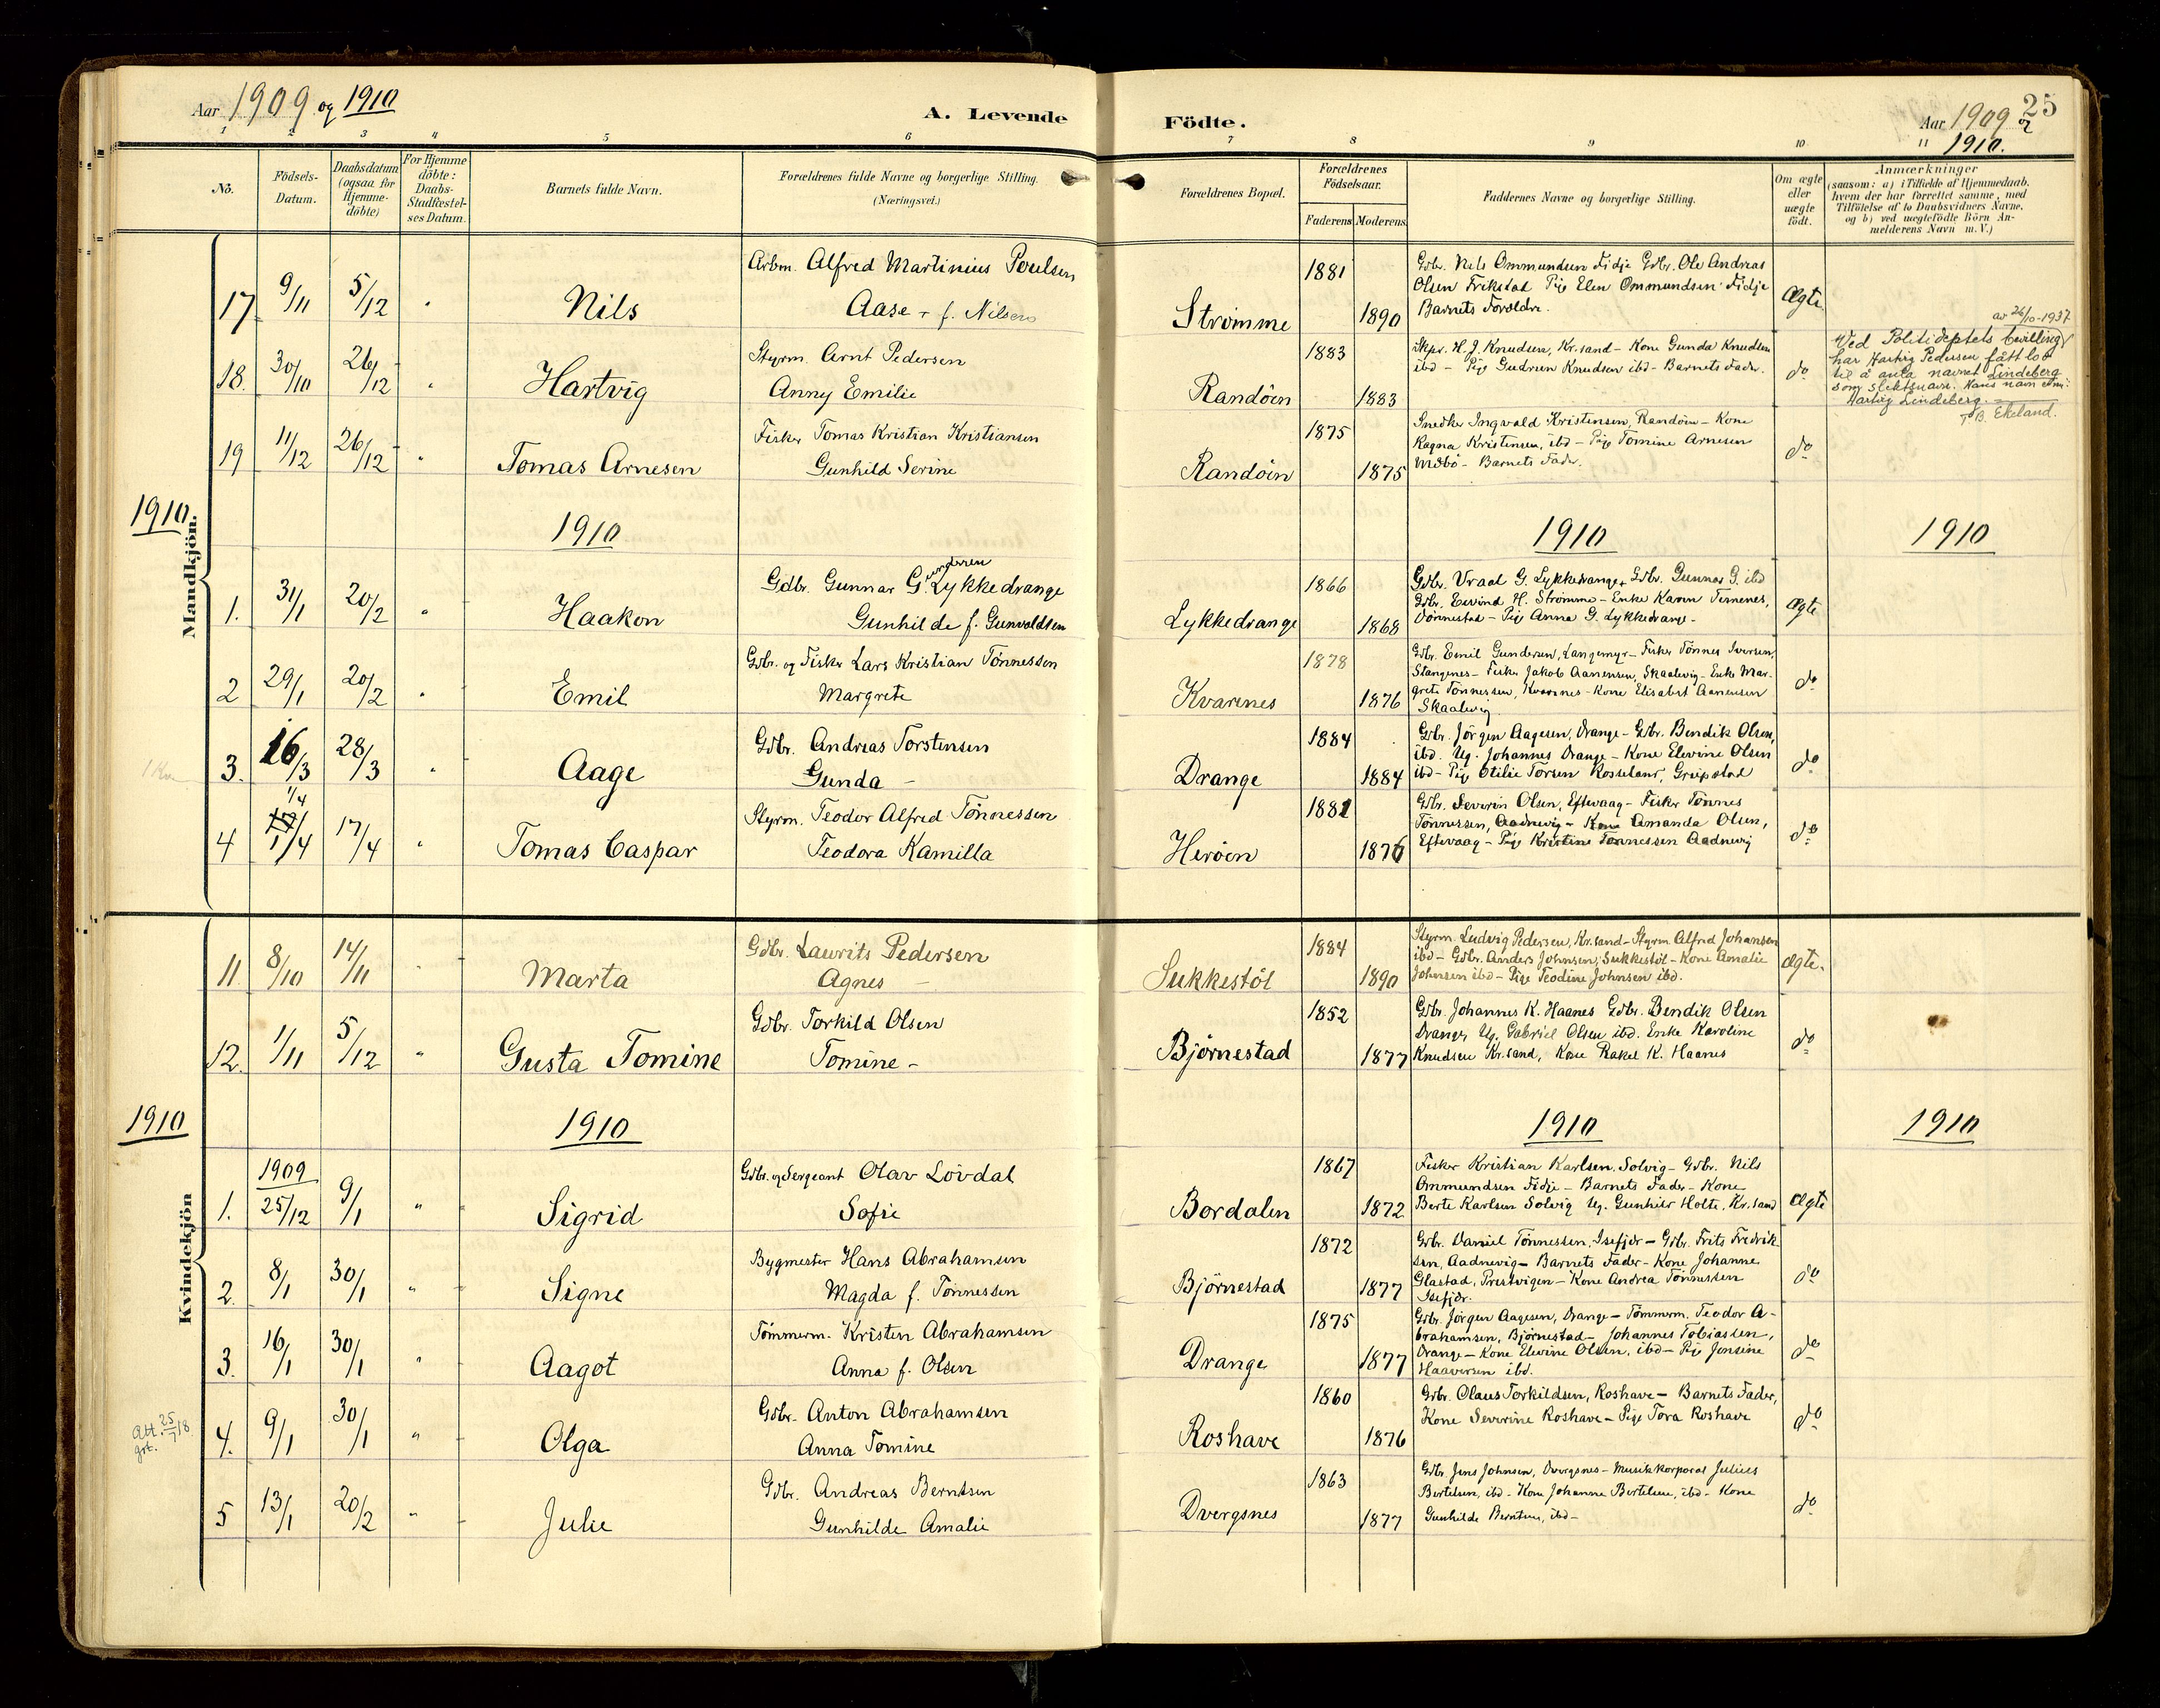 Aar 1909 og 1910
A. Levende
Födte.
Aar 1909 og 1910.
25
1 2 3 4 5 6 7 8 9 10 11
No.
Födsels-
Datum.
Daabsdatum
(ogsaa for
Hjemme-
döbte)
For Hjemme
döbte:
Daabs-
Stadfæstel-
ses Datum.
Barnets fulde Navn.
Forældrenes fulde Navne og borgerlige Stilling.
(Næringsvei.)
Forældrenes Bopæl.
Forældrenes
Födselsaar.
Faderens Moderens
Faddernes Navne og borgerlige Stilling.
Om ægte
eller
uægte
födt.
Anmærkninger
(saasom: a) i Tilfælde af Hjemmedaab.
hvem der har forrettet samme, med
Tilföielse af to Daabsvidners Navne,
og b) ved uægtefödte Börn An-
melderens Navn m. V.)
Mandkjön.
17 9/11 5/12 " Nils
Arbm. Alfred Martinius Poulsen
Aase - f. Nilsen
Strømme 1881 1890
Gdbr. Nils Ommundsen Fidje Gdbr. Ole Andreas
Olsen Frikstad Pige Elen Ommundsen Fidje
Barnets Foreldre.
Ægte
18. 30/10 26/12 " Hartvig
Styrm. Arnt Pedersen
Anny Emilie
Randöen 1883 1883
Skpr. H. J. Knudsen, Kr.sand - Kone Gunda Knudsen
ibd - Pige Gudrun Knudsen ibd - Barnets Fader.
do
av 26/10-1937
Ved Politideptets bevilling
har Hartvig Pedersen fått lov
til å anta navnet Lindeberg
som slektsnavn. Hans navn er nu:
Hartvig Lindeberg.
B. Ekeland.
19 11/12 26/12 " Tomas Arnesen
Fisker Tomas Kristian Kristiansen
Gunhild Serine
Randöen 1875 1875
Snedker Ingvald Kristensen, Randöen - Kone
Ragna Kristensen, ibd - Pige Tomine Arnesen
- Barnets Fader.
do
1910.
1910
1910
1910
1. 31/1 20/2 " Haakon
Gdbr. Gunnar G. Lykkedrange
Gunderen
Gunhilde f. Gunvaldsen
Lykkedrange 1866 1868
Gdbr. Vraal G. Lykkedrange, Gdbr. Gunnar G. ibd
Gdbr. Eivind H. Strömme - Enke Karen
- Pige Anna G. Lykkedrange -
Ægte
2 29/1 20/2 " Emil
Gdbr. og Fisker Lars Kristian Tönnessen
Margrete
Kvarenes 1878 1876
Gdbr. Emil Gundersen, Langemyr - Fisker Tönnes Iversen,
Stangenes - Fisker Jakob Aanensen, Skaalevig - Enke Mar-
grete Tönnessen, Kvarenes - Kone Elisabet Aanensen
Skaalevig
do
1 Kn
3. 16/3 28/3 " Aage
Gdbr. Andreas Torstensen
Gunda -
Drange 1884 1884
Gdbr. Jörgen Aagesen, Drange - Gdbr. Bendik Olsen,
ibd. Ug. Johannes Drange - Kone Elevine Olsen
ibd - Pige Otilie Torsen Rosseland, Greipstad
do
1/4
4 17/4 " Tomas Caspar
Styrm. Teodor Alfred Tönnessen
Teodora Kamilla
Heröen 1881 1876
Gdbr. Severin Olsen, Eftevaag - Fisker Tönnes
Tönnessen, Aadnevig - Kone Amanda Olsen,
Eftevaag - Pige Kristine Tønnessen Aadnevig
do
Kvindekjön
11 8/10 14/11 " Marta
Gdbr. Laurits Pedersen
Agnes -
Sukkestöl 1884 1890
Styrm. Ludvig Pedersen, Kr.sand - Styrm. Alfred Johansen
ibd - Gdbr. Anders Johnsen, Sukkestöl - Kone Amalie
Johnsen ibd - Pige Teodine Johnsen ibd.
Ægte.
12. 1/11 5/12 " Gusta Tomine
Gdbr. Torkild Olsen
Tomine -
Björnestad 1852 1877
Gdbr. Johannes K. Haanes Gdbr. Bendik Olsen
Drange, Ug. Gabriel Olsen ibd. Enke Karoline
Knudsen Kr.sand, Kone Rakel K. Haanes
do
1910
1910
1910
1910
1909
1. 25/12 9/1 " Sigrid
Gdbr. og Sergeant Olav Lövdal
Sofie
Bordalen 1867 1872
Fisker Kristian Karlsen, Solvig - Gdbr. Nils
Ommundsen Fidje - Barnets Fader - Kone
Berte Karlsen Solvig Ug. Gunhild Holte, Kr.sand
Ægte
2. 8/1 30/1 " Signe
Bygmester Hans Abrahamsen
Magda f. Tönnessen
Björnestad 1872 1877
Gdbr. Daniel Tönnessen, Isefjær - Gdbr. Frits Fredrik-
sen, Aadnevig - Barnets Fader - Kone Johanne
Glastad, Prestvigen - Kone Andrea Tönnessen
Isefjær.
do
3. 16/1 30/1 " Aagot
Tömmerm. Kristen Abrahamsen
Anna f. Olsen
Drange 1875 1877
Gdbr. Jörgen Aagesen, Drange - Tömmerm. Teodor A-
brahamsen, Björnestad - Johannes Tobiassen,
Drange - Kone Elevine Olsen, ibd - Pige Jensine
Haaversen ibd.
do
Att. 25/7 18
grt.
4. 9/1 30/1 " Olga
Gdbr. Anton Abrahamsen
Anna Tomine
Roshave 1860 1876
Gdbr. Olaus Torkildsen, Roshave - Barnets Fader,
Kone Severine Roshave - Pige Tora Roshave
do
5 13/1 20/2 " Julie
Gdbr. Andreas Berntsen
Gunhilde Amalie
Dvergsnes 1863 1877
Gdbr. Jens Johnsen, Dvergsnes - Musikkorporal Julius
Bertelsen, ibd - Kone Johanne Bertelsen, ibd - Kone
Gunhilde Berntsen, ibd -
do